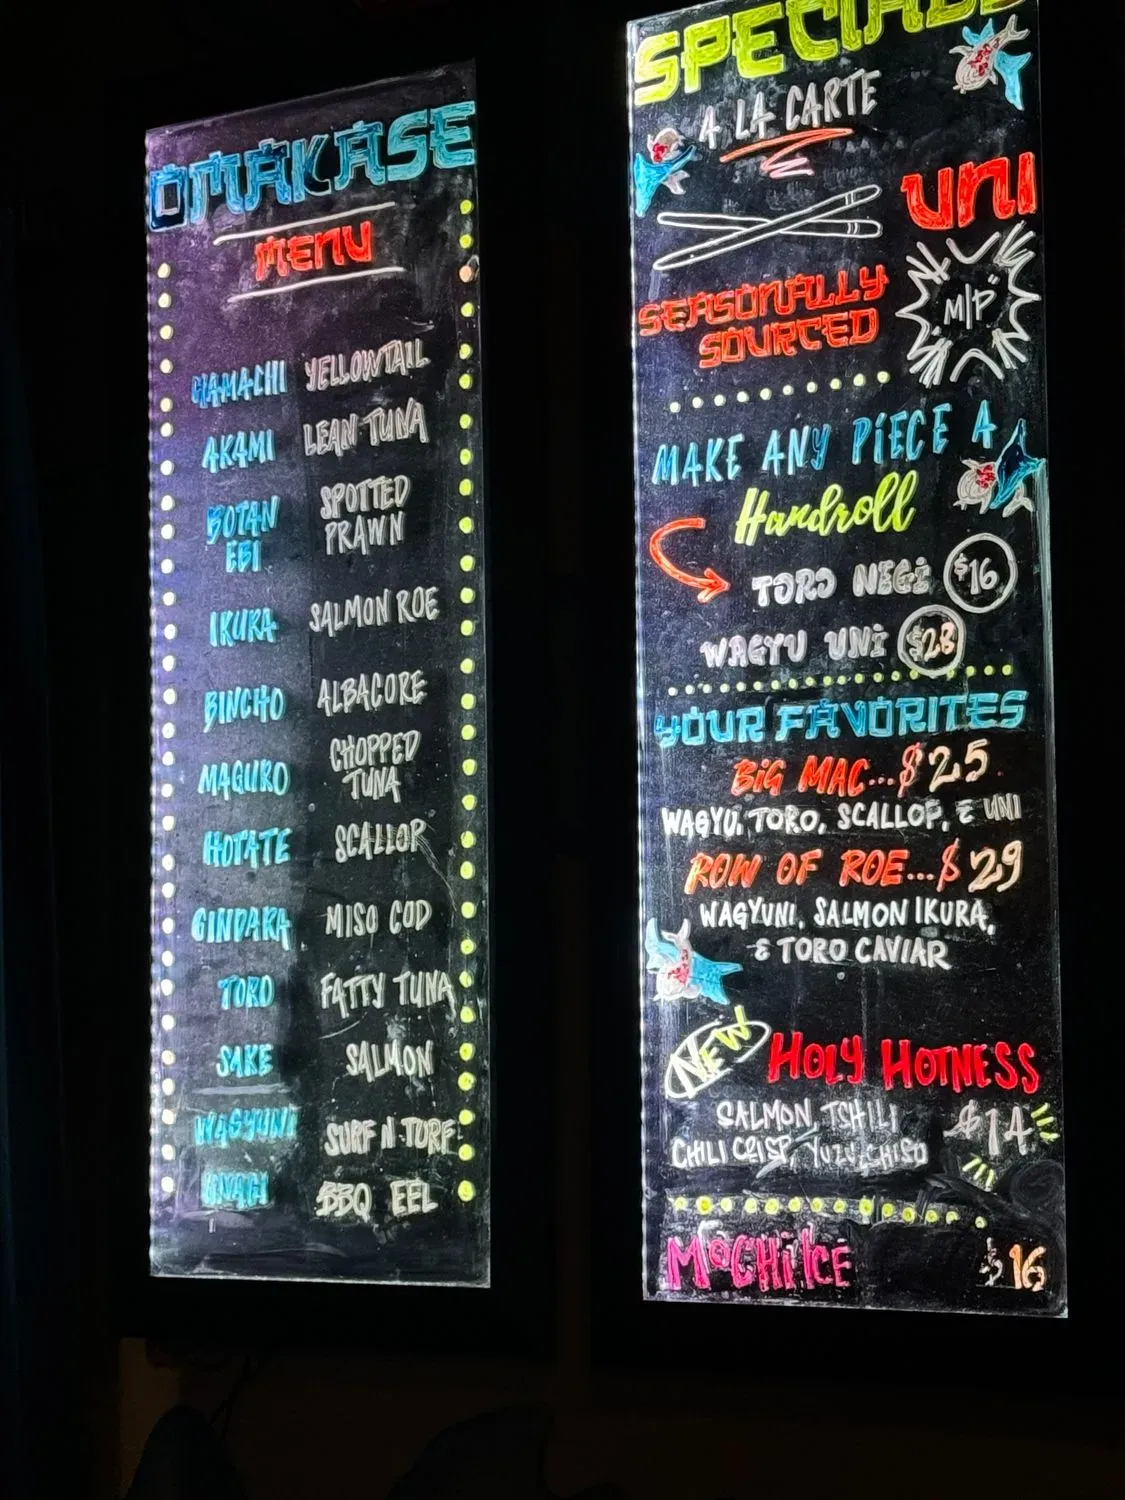 OMAKASE
MENU
HAMACHI YELLOWTAIL
AKAMI LEAN TUNA
BOTAN EBI SPOTTED PRAWN
IKURA SALMON ROE
BINCHO ALBACORE
MAGURO CHOPPED TUNA
HOTATE SCALLOP
GINDARA MISO COD
TORO FATTY TUNA
SAKE SALMON
WAGYUNI SURF N TURF
UNAGI BBQ EEL
SPECIALS
A LA CARTE
UNI
SEASONALLY
SOURCED
M/P
MAKE ANY PIECE A
Handroll
TORO NEGI $16
WAGYU UNI $28
YOUR FAVORITES
BIG MAC...$25
WAGYU, TORO, SCALLOP, & UNI
ROW OF ROE...$29
WAGYUNI, SALMON IKURA,
& TORO CAVIAR
NEW HOLY HOTNESS
SALMON, TSHILI $14
CHILI CRISP, YUZU, CHISO
MOCHI ICE $16